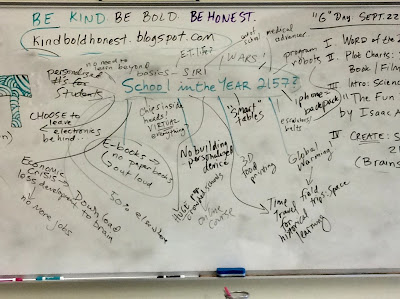 BE KIND. BE BOLD. BE HONEST.
kindboldhonest.blogspot.com
"G" Day. SEPT. 22
E.T. life?
WARS?
medical advances
no need to
learn beyond
basics - SIRI
personalized
to
students
School in the YEAR 2157?
program
robots
I Word of the
II Plot Charts:
Book / Film
III Intro: Science
"The Fun
by Isaac A
IV CREATE: S
21
(Brains
iphone =
backpack
escalators/
belts
Chips inside
heads/
VIRTUAL
everything
"Smart"
tables
CHOOSE to
leave
electronics
behind.
E-books →
no paperbooks/
out loud
No building/
personalized
device
3D
food
printing
Global
Warming
Economic
Crisis →
less development
no more jobs
Download
to brain
50% elsewhere
HUGE
crowded schools
online
course
Time
Travel
for
historical
learning
field
trips: Space